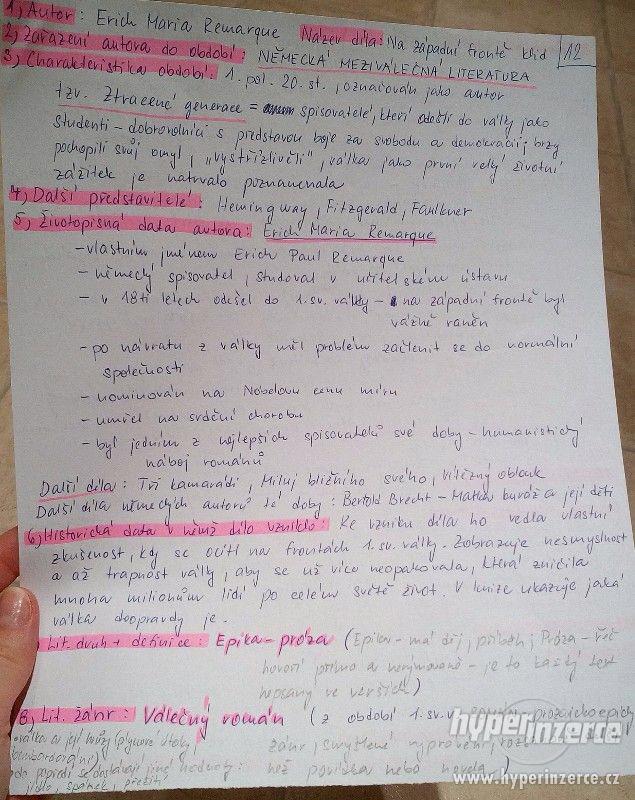 1, Autor: Erich Maria Remarque Název díla: Na západní frontě klid 12
2, Zařazení autora do období: NĚMECKÁ MEZIVÁLEČNÁ LITERATURA
3, Charakteristika období: 1. pol. 20. st., označován jako autor
tzv. Ztracené generace = spisovatelé, kteří odešli do války jako
studenti - dobrovolníci s představou boje za svobodu a demokracii, brzy
pochopili svůj omyl, "vystřízlivěli", válka jako první velký životní
zážitek je natrvalo poznamenala
4, Další představitelé: Hemingway, Fitzgerald, Faulkner
5, Životopisná data autora: Erich Maria Remarque
- vlastním jménem Erich Paul Remarque
- německý spisovatel, studoval v učitelském ústavu
- v 18ti letech odešel do 1. sv. války - na západní frontě byl
vážně raněn
- po návratu z války měl problém začlenit se do normální
společnosti
- nominován na Nobelovu cenu míru
- umřel na srdeční chorobu
- byl jedním z nejlepších spisovatelů své doby - humanistický
náboj románů
Další díla: Tři kamarádi, Miluj bližního svého, Vítězný oblouk
Další díla německých autorů té doby: Bertold Brecht - Matka kuráž a její děti
6, Historická data v němž dílo vzniklo: Ke vzniku díla ho vedla vlastní
zkušenost, kdy se ocitl na frontách 1. sv. války. Zobrazuje nesmyslnost
a až trapnost války, aby se už více neopakovala, která zničila
mnoha milionům lidí po celém světě život. V knize ukazuje jaká
válka doopravdy je.
Lit. druh + definice: Epika - próza (Epika - má děj, příběh; Próza - řeč
hovoří přímo a - je to každý text
nepsaný ve verších)
8, Lit. žánr: Válečný román (z období 1. sv. v.
válka a její hrůzy (plynové útoky, žánr, smyšlené vyprávění,
bombardování)
do popředí se dostávají jiné hodnoty: než povídka nebo novela)
jídlo, spánek, přežití
hyperinzerce
www.hyperinzerce.cz